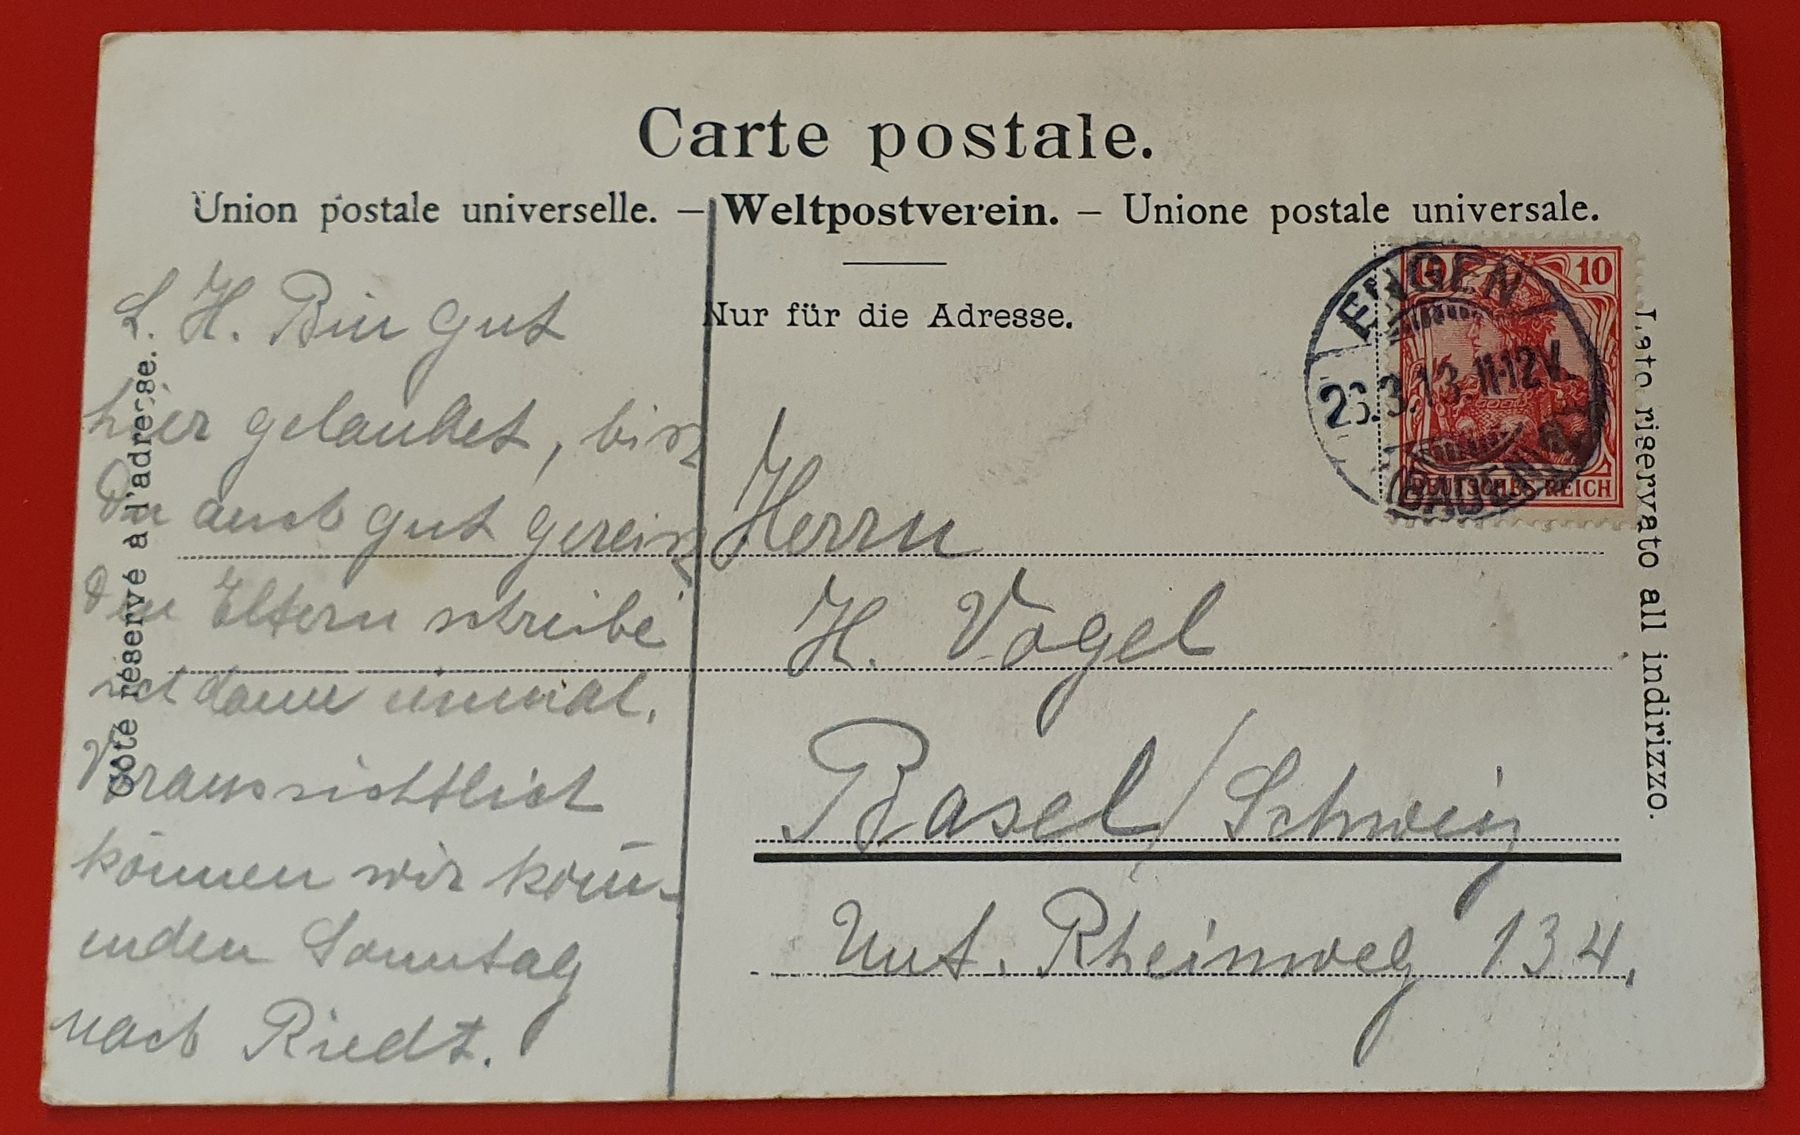 Carte postale.
Union postale universelle. – Weltpostverein. – Unione postale universale.
Nur für die Adresse.
Côté réservé à l'adresse.
Lato riservato all indirizzo.
10
DEUTSCHES REICH
ENGEN
26.3.13. 11-12 V.
(BADEN)
L. H. Bin gut
hier gelandet, bist
Du auch gut gereist
Den Eltern schreibe
ich dann einmal.
Voraussichtlich
können wir kom̄-
enden Sonntag
nach Riedt.
Herrn
H. Vogel
Basel / Schweiz
Unt. Rheinweg 134.